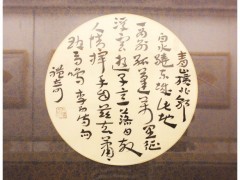 青山橫北郭
白水遶東城此地
一為別孤蓬萬里征
浮雲遊子意落日故
人情揮手自茲去蕭
蕭班馬鳴 李白詩句